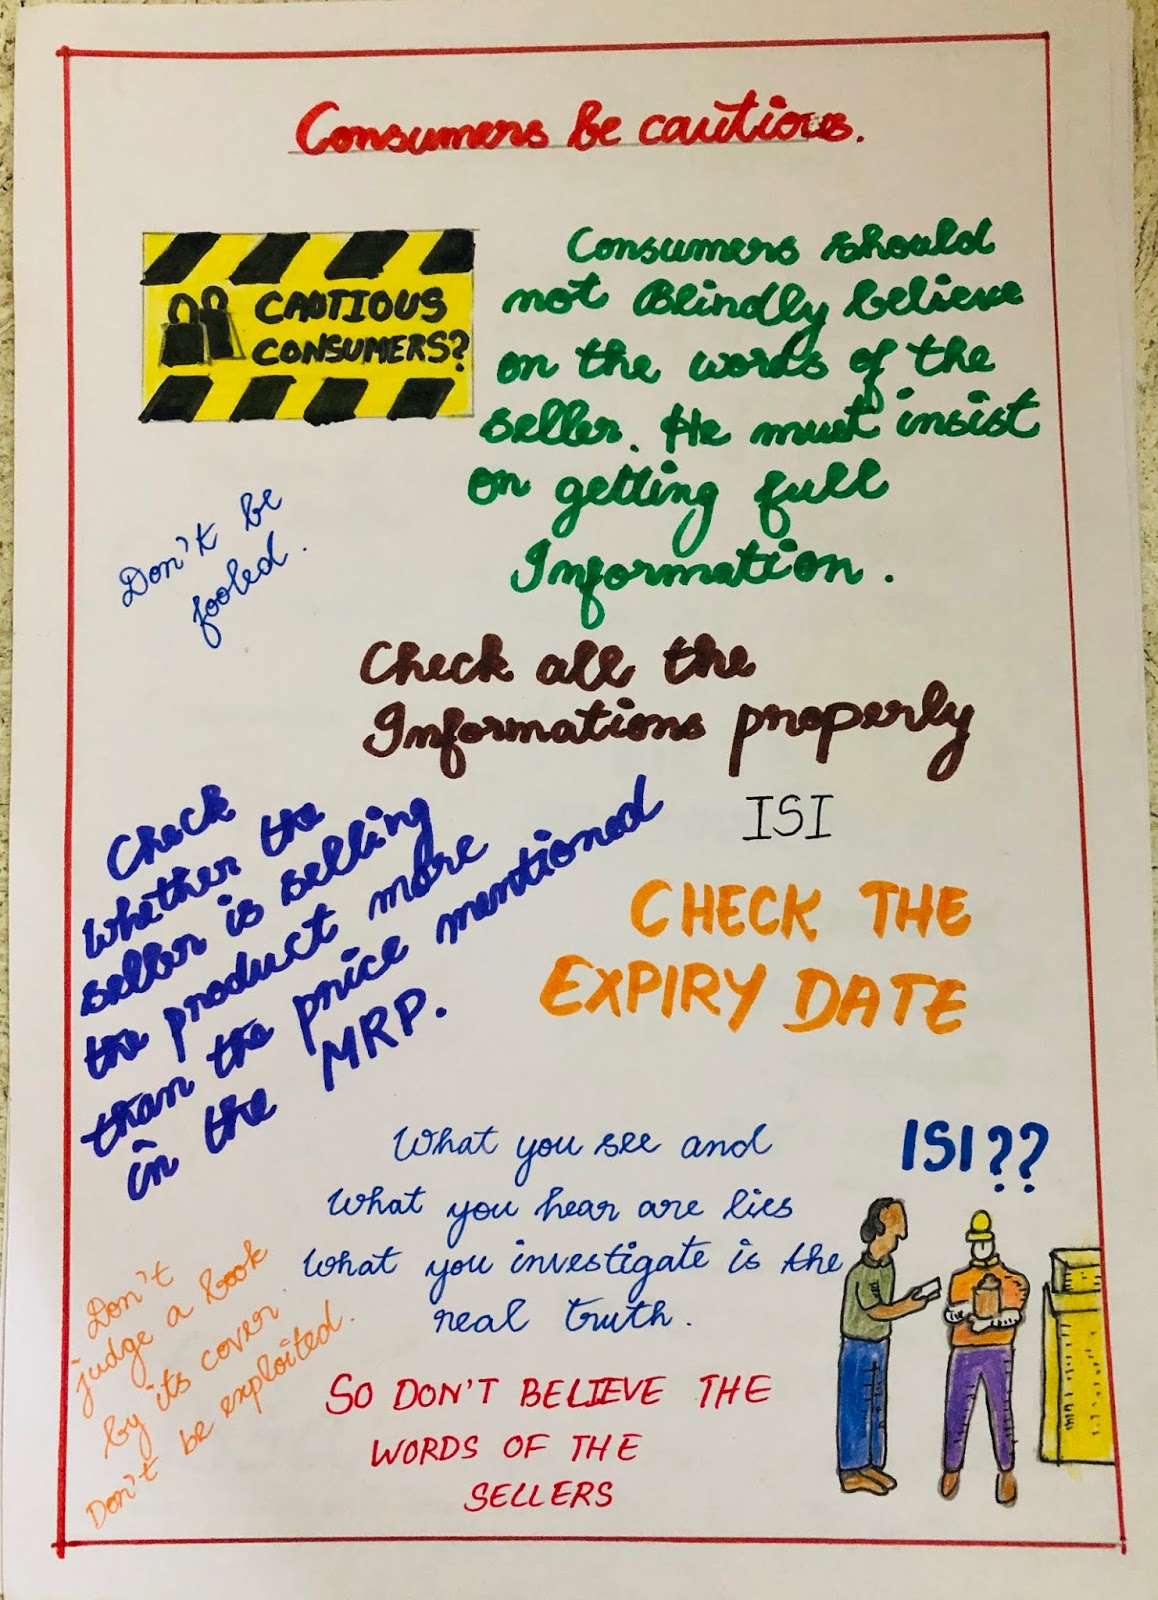 Consumers be cautious.
CAUTIOUS
CONSUMERS?
Consumers should
not Blindly believe
on the words of the
seller. He must insist
on getting full
Information.
Don't be
fooled.
Check all the
Informations properly
ISI
Check
whether the
seller is selling
the product more
than the price mentioned
in the MRP.
CHECK THE
EXPIRY DATE
What you see and
What you hear are lies
What you investigate is the
real truth.
ISI??
Don't
judge a book
by its cover
Don't be exploited.
SO DON'T BELIEVE THE
WORDS OF THE
SELLERS